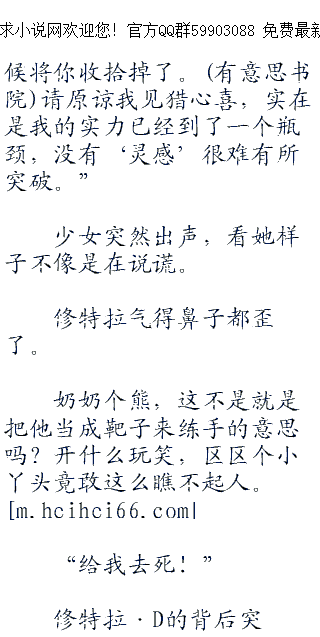 求小说网欢迎您！官方QQ群59903088 免费最新
候将你收拾掉了。(有意思书
院)请原谅我见猎心喜，实在
是我的实力已经到了一个瓶
颈，没有‘灵感’很难有所
突破。”
少女突然出声，看她样
子不像是在说谎。
修特拉气得鼻子都歪
了。
奶奶个熊，这不是就是
把他当成靶子来练手的意思
吗？开什么玩笑，区区个小
丫头竟敢这么瞧不起人。
[m.hcihci66.com]
“给我去死！”
修特拉·D的背后突